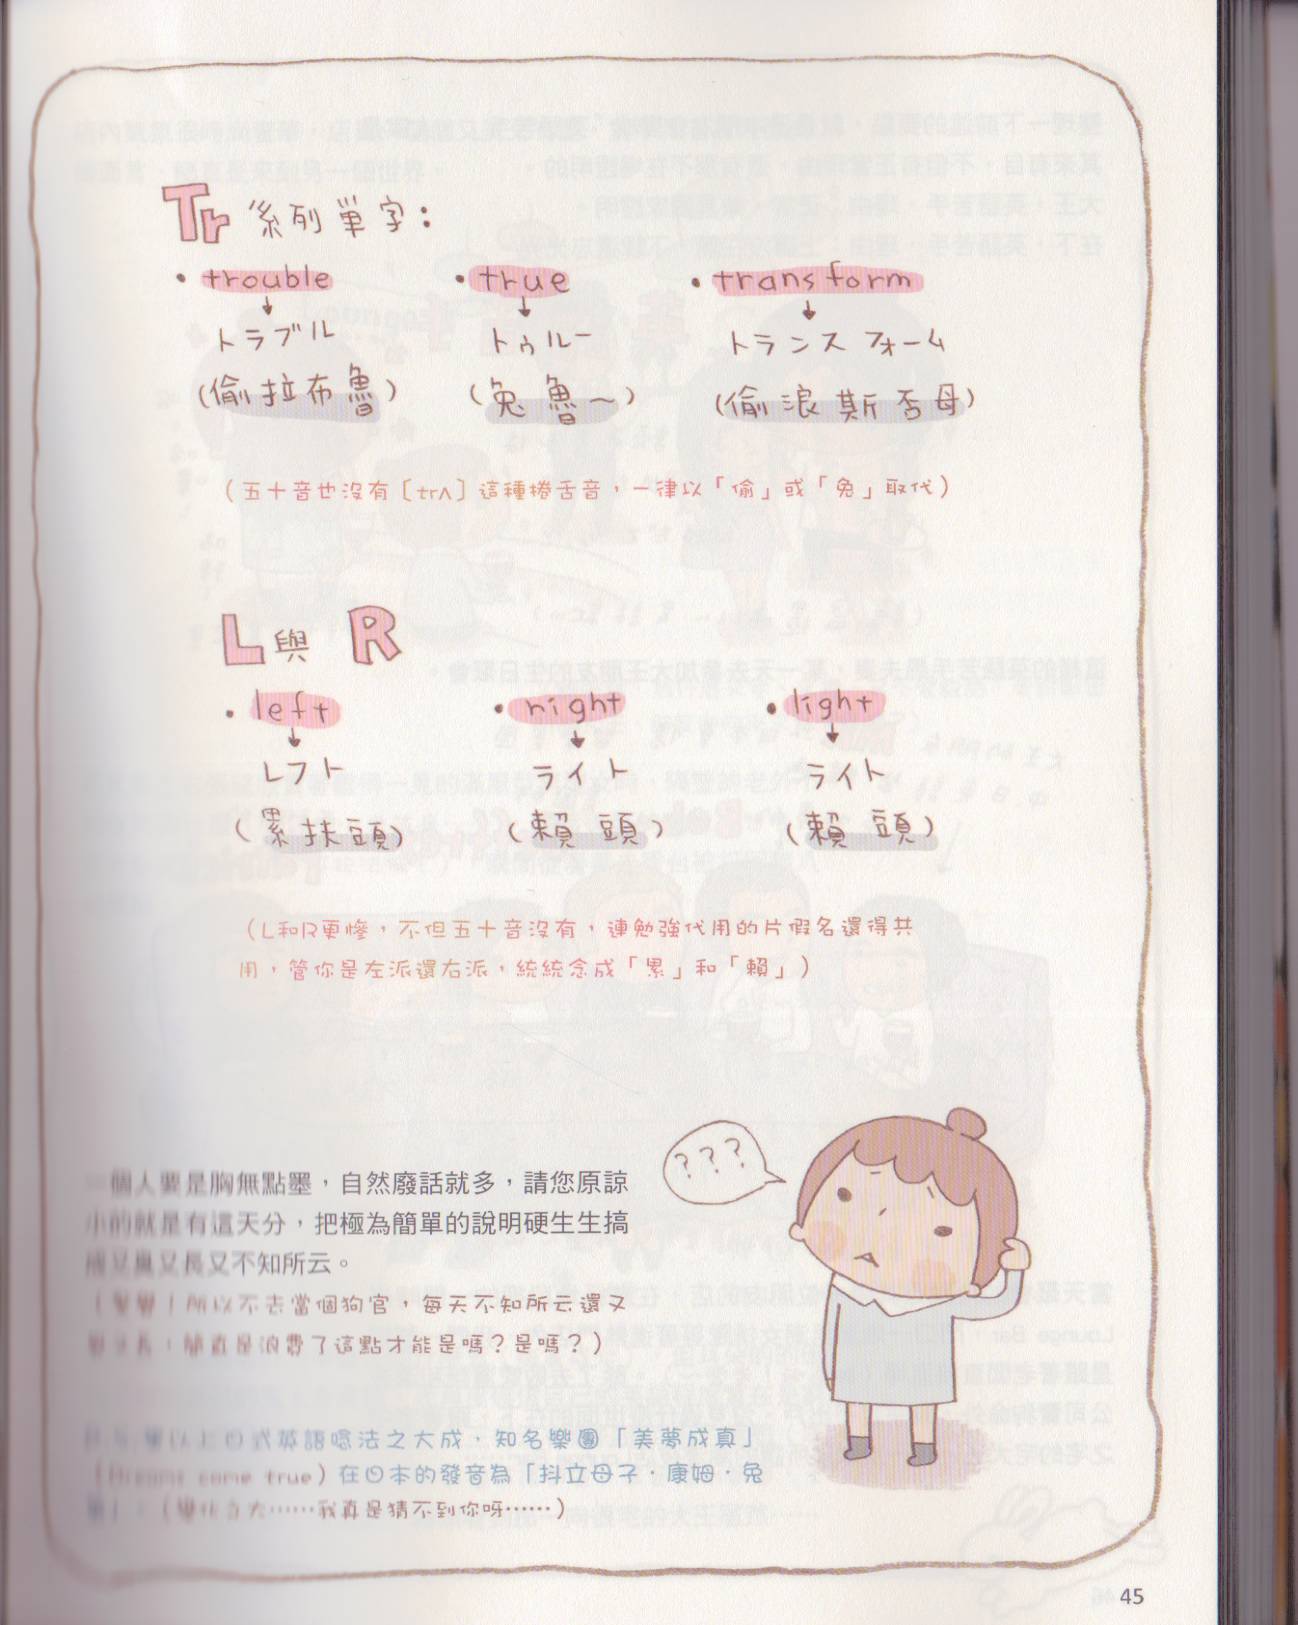 Tr 系列單字：
・trouble ・true ・transform
↓ ↓ ↓
トラブル トゥルー トランスフォーム
(偷拉布魯) (兔魯～) (偷浪斯否母)
（五十音也沒有〔trʌ〕這種捲舌音，一律以「偷」或「兔」取代）
L與R
・left ・right ・light
↓ ↓ ↓
レフト ライト ライト
(累扶頭) (賴頭) (賴頭)
（L和R更慘，不但五十音沒有，連勉強代用的片假名還得共
用，管你是左派還右派，統統念成「累」和「賴」）
???
一個人要是胸無點墨，自然廢話就多，請您原諒
小的就是有這天分，把極為簡單的說明硬生生搞
成又臭又長又不知所云。
所以不去當個狗官，每天不知所云還又
臭又長，簡直是浪費了這點才能是嗎？是嗎？）
以上日式英語唸法之大成，知名樂團「美夢成真」
（Dreams come true）在日本的發音為「抖立母子・康姆・兔
魯」。（變化之大……我真是猜不到你呀……）
45